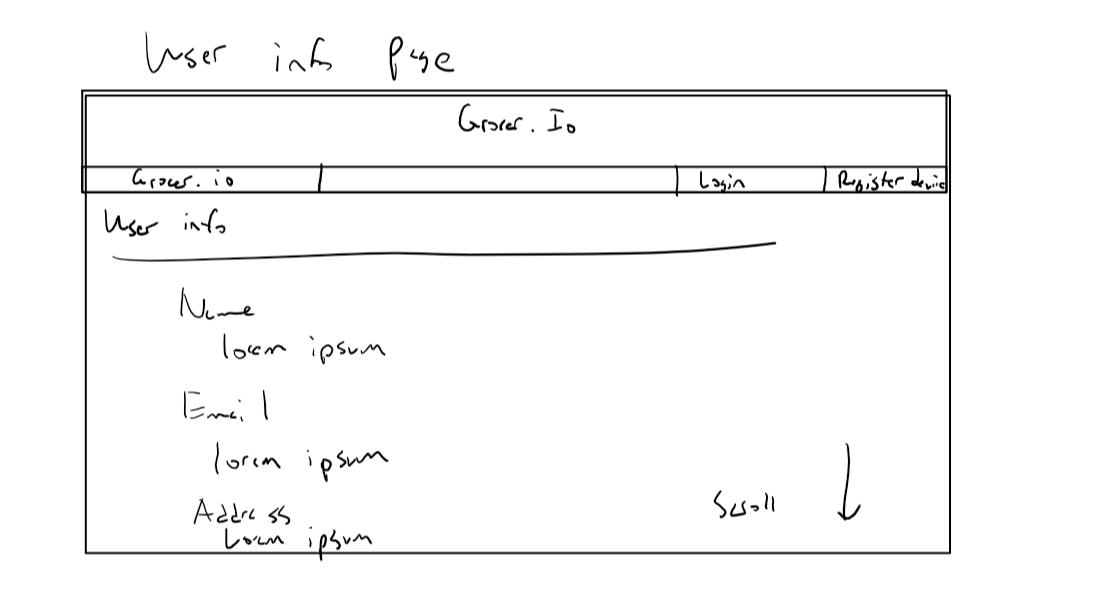 User info Page
Grocer.Io
Grocer.io Login Register device
User info
Name
lorem ipsum
Email
lorem ipsum
Address
Lorem ipsum
Scroll